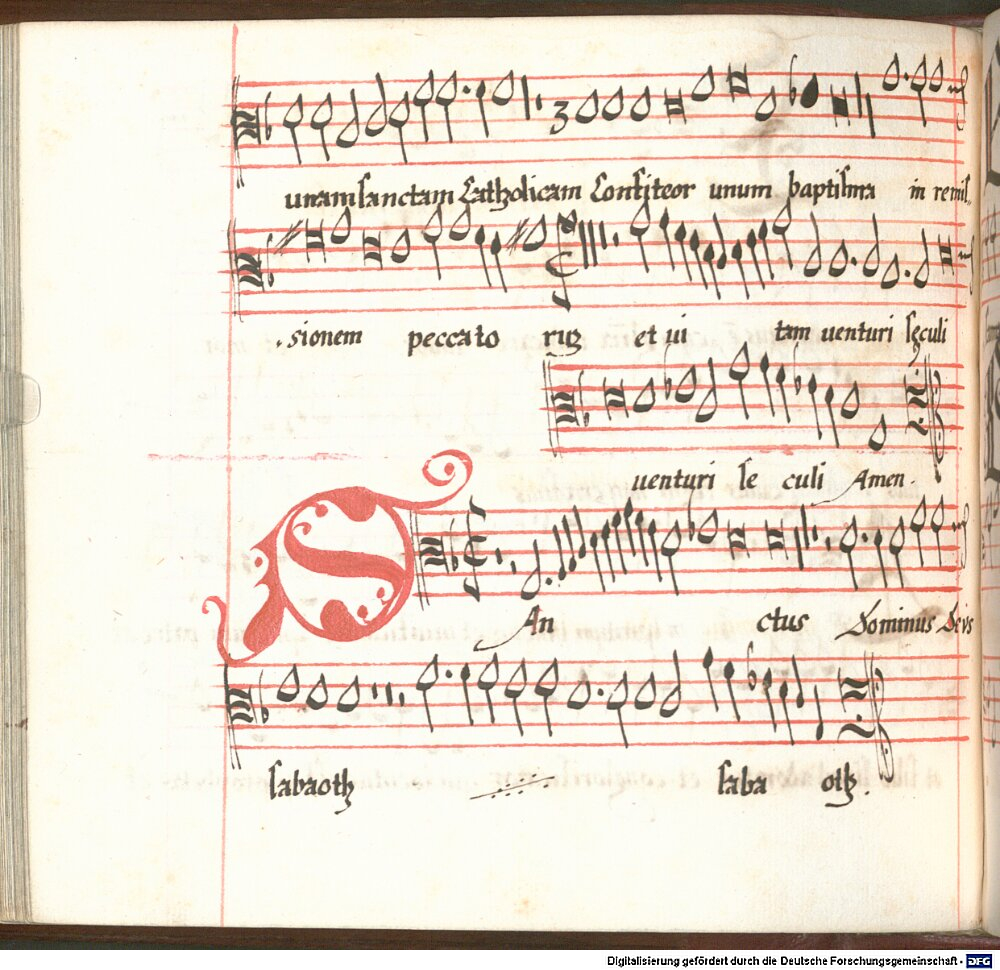 unam sanctam Catholicam Confiteor unum baptisma in remis-
sionem peccato rum et ui tam uenturi seculi
uenturi se culi Amen.
SAn ctus Dominus Deus
sabaoth saba oth.
Digitalisierung gefördert durch die Deutsche Forschungsgemeinschaft - DFG